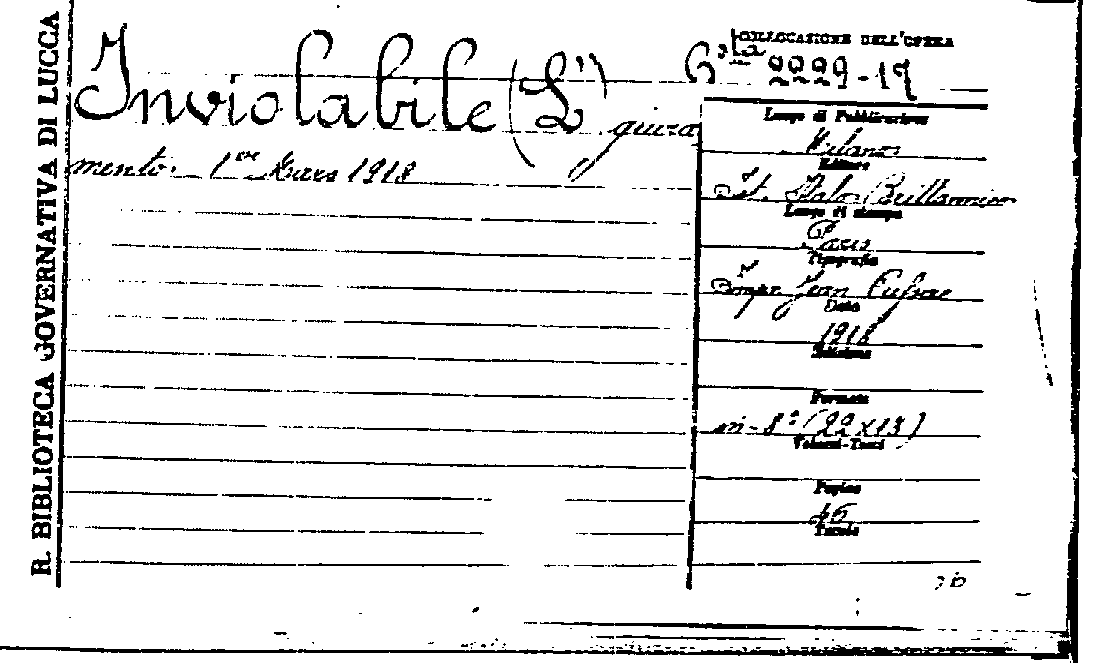 R. BIBLIOTECA GOVERNATIVA DI LUCCA
Inviolabile (L') giura
mento. 1er Mars 1918
COLLOCAZIONE DELL'OPERA
Bta 2229-19
Luogo di Pubblicazione
Milano
Editore
Ist. Italo Brittannico
Luogo di stampa
Paris
Tipografia
Impr. Jean Cussac
Data
1918
Edizione
Formato
in-8° (22x13)
Volumi-Tomi
Pagine
46
Tavole